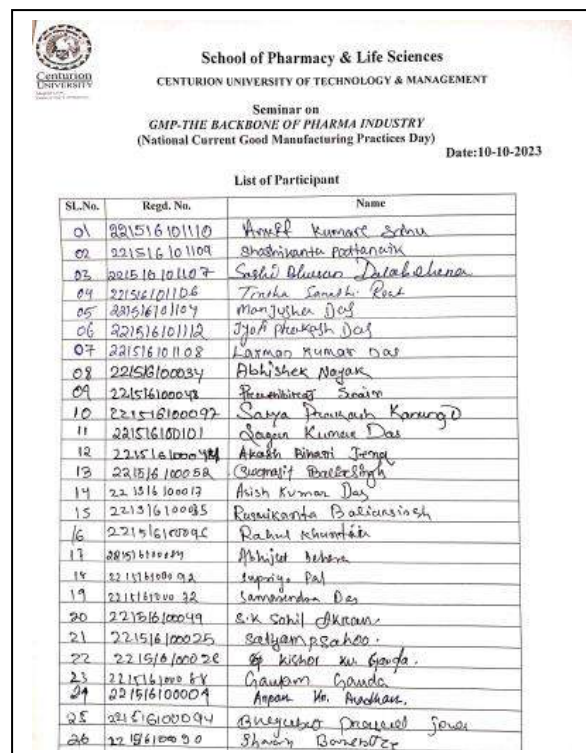 Centurion
UNIVERSITY
School of Pharmacy & Life Sciences
CENTURION UNIVERSITY OF TECHNOLOGY & MANAGEMENT
Seminar on
GMP-THE BACKBONE OF PHARMA INDUSTRY
(National Current Good Manufacturing Practices Day)
Date:10-10-2023
List of Participant
SL.No. Regd. No. Name
01 221516101110 Kumar Sahu
02 221516101109 Shashikanta Pattanaik
03 221516101107 Sashi Bhusan Dalabehera
04 221516101106 Tirtha Rout
05 221516101104 Manjusha Das
06 221516101112 Jyoti Prakash Das
07 221516101108 Laxman Kumar Das
08 221516100034 Abhishek Nayak
09 221516100048 Swain
10 221516100097 Satya Prakash Kanungo
11 221516100101 Sagar Kumar Das
12 Akash Bihari Jena
13 221516100052 Baliarsingh
14 Asish Kumar Das
15 Rasmikanta Baliarsingh
16 Rahul Khuntia
17 Abhijeet Behera
18 221516100092 Supriya Pal
19 Das
20 221516100049 S.K Sahil Akram
21 221516100025 Satyam p sahoo.
22 Kishor ku. Gouda.
23 Gautam Gauda
24 221516100004 Arpan Ku. Pradhan.
25 221516100094 Jena
26 221516100090